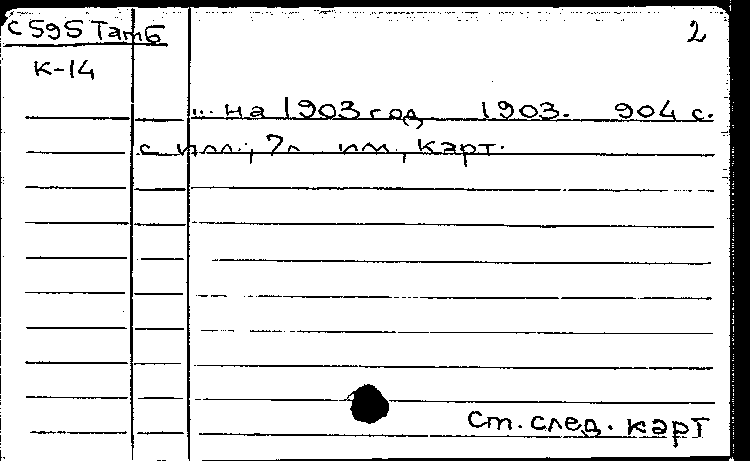 С595 ТатБ 2
К-14
... на 1903 год 1903. 904 с.
с илл., 7л илл., карт.
Ст. след. карт